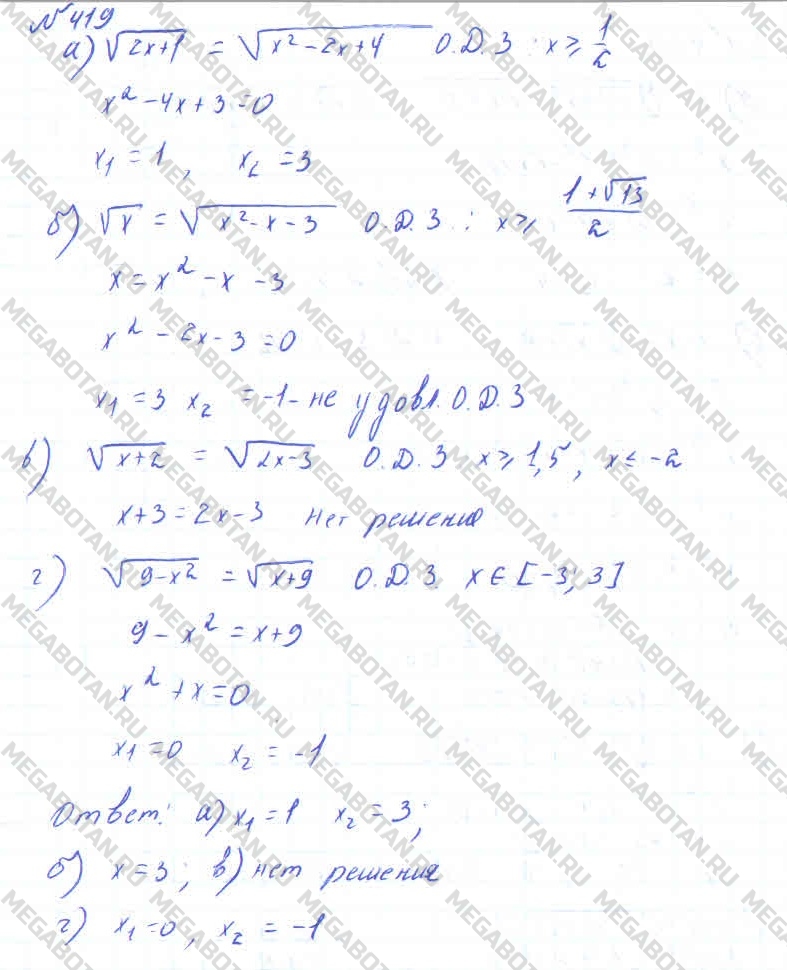 №419
а) √(2x+1) = √(x²-2x+4) О.Д.З : x ≥ 1/2
x² - 4x + 3 = 0
x₁ = 1, x₂ = 3
б) √x = √(x²-x-3) О.Д.З : x ≥ (1+√13)/2
x = x² - x - 3
x² - 2x - 3 = 0
x₁ = 3 x₂ = -1 - не удовл. О.Д.З
в) √(x+2) = √(2x-3) О.Д.З x ≥ 1,5, x ≤ -2
x+3 = 2x-3 нет решения
г) √(9-x²) = √(x+9) О.Д.З. x ∈ [-3; 3]
9 - x² = x+9
x² + x = 0
x₁ = 0 x₂ = -1
Ответ: а) x₁ = 1 x₂ = 3;
б) x = 3; в) нет решения
г) x₁ = 0, x₂ = -1
MEGABOTAN.RU